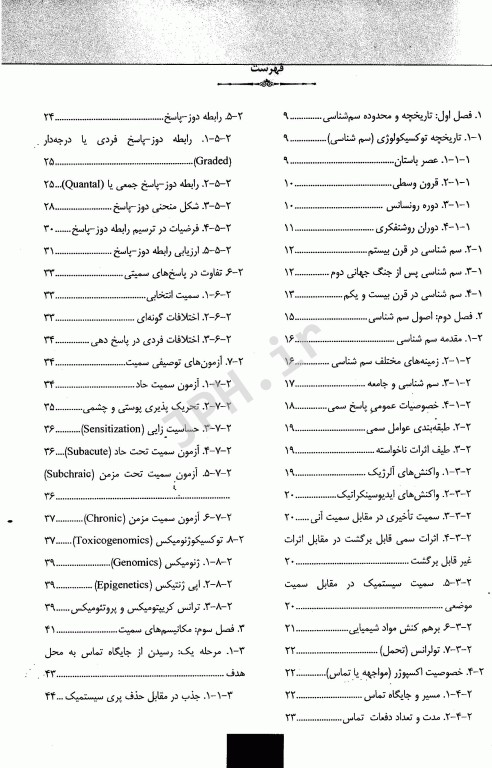 فهرست
۱. فصل اول: تاریخچه و محدوده سم‌شناسی ............... ۹
۱-۱. تاریخچه توکسیکولوژی (سم شناسی) ............... ۹
۱-۱-۱. عصر باستان ............... ۹
۲-۱-۱. قرون وسطی ............... ۱۰
۳-۱-۱. دوره رونسانس ............... ۱۰
۴-۱-۱. دوران روشنفکری ............... ۱۱
۲-۱. سم شناسی در قرن بیستم ............... ۱۲
۳-۱. سم شناسی پس از جنگ جهانی دوم ............... ۱۲
۴-۱. سم شناسی در قرن بیست و یکم ............... ۱۳
۲. فصل دوم: اصول سم شناسی ............... ۱۵
۱-۲. مقدمه سم شناسی ............... ۱۶
۲-۱-۲. زمینه‌های مختلف سم شناسی ............... ۱۶
۳-۱-۲. سم شناسی و جامعه ............... ۱۷
۴-۱-۲. خصوصیات عمومی پاسخ سمی ............... ۱۸
۲-۲. طبقه‌بندی عوامل سمی ............... ۱۹
۳-۲. طیف اثرات ناخواسته ............... ۱۹
۱-۳-۲. واکنش‌های آلرژیک ............... ۱۹
۲-۳-۲. واکنش‌های ایدیوسینکراتیک ............... ۲۰
۳-۳-۲. سمیت تأخیری در مقابل سمیت آنی ..... ۲۰
۴-۳-۲. اثرات سمی قابل برگشت در مقابل اثرات
غیر قابل برگشت ............... ۲۰
۵-۳-۲. سمیت سیستمیک در مقابل سمیت
موضعی ............... ۲۰
۶-۳-۲. برهم کنش مواد شیمیایی ............... ۲۱
۷-۳-۲. تولرانس (تحمل) ............... ۲۲
۴-۲. خصوصیت اکسپوژر (مواجهه یا تماس) ............... ۲۲
۱-۴-۲. مسیر و جایگاه تماس ............... ۲۲
۲-۴-۲. مدت و تعداد دفعات تماس ............... ۲۳
۵-۲. رابطه دوز-پاسخ ............... ۲۴
۱-۵-۲. رابطه دوز-پاسخ فردی یا درجه‌دار
(Graded) ............... ۲۵
۲-۵-۲. رابطه دوز-پاسخ جمعی یا (Quantal) ... ۲۵
۳-۵-۲. شکل منحنی دوز-پاسخ ............... ۲۸
۴-۵-۲. فرضیات در ترسیم رابطه دوز-پاسخ ..... ۳۰
۵-۵-۲. ارزیابی رابطه دوز-پاسخ ............... ۳۱
۶-۲. تفاوت در پاسخ‌های سمیتی ............... ۳۳
۱-۶-۲. سمیت انتخابی ............... ۳۳
۲-۶-۲. اختلافات گونه‌ای ............... ۳۳
۳-۶-۲. اختلافات فردی در پاسخ دهی ............... ۳۴
۷-۲. آزمون‌های توصیفی سمیت ............... ۳۴
۱-۷-۲. آزمون سمیت حاد ............... ۳۴
۲-۷-۲. تحریک پذیری پوستی و چشمی ............... ۳۵
۳-۷-۲. حساسیت زایی (Sensitization) ............... ۳۶
۴-۷-۲. آزمون سمیت تحت حاد (Subacute) ... ۳۶
۵-۷-۲. آزمون سمیت تحت مزمن (Subchraic)
............... ۳۶
۶-۷-۲. آزمون سمیت مزمن (Chronic) ............... ۳۷
۸-۲. توکسیکوژنومیکس (Toxicogenomics) ............... ۳۷
۱-۸-۲. ژنومیکس (Genomics) ............... ۳۹
۲-۸-۲. اپی ژنتیکس (Epigenetics) ............... ۳۹
۳-۸-۲. ترانس کریپتومیکس و پروتئومیکس ...... ۳۹
۳. فصل سوم: مکانیسم‌های سمیت ............... ۴۱
۱-۳. مرحله یک: رسیدن از جایگاه تماس به محل
هدف ............... ۴۳
۱-۱-۳. جذب در مقابل حذف پری سیستمیک .... ۴۴
JPH.ir